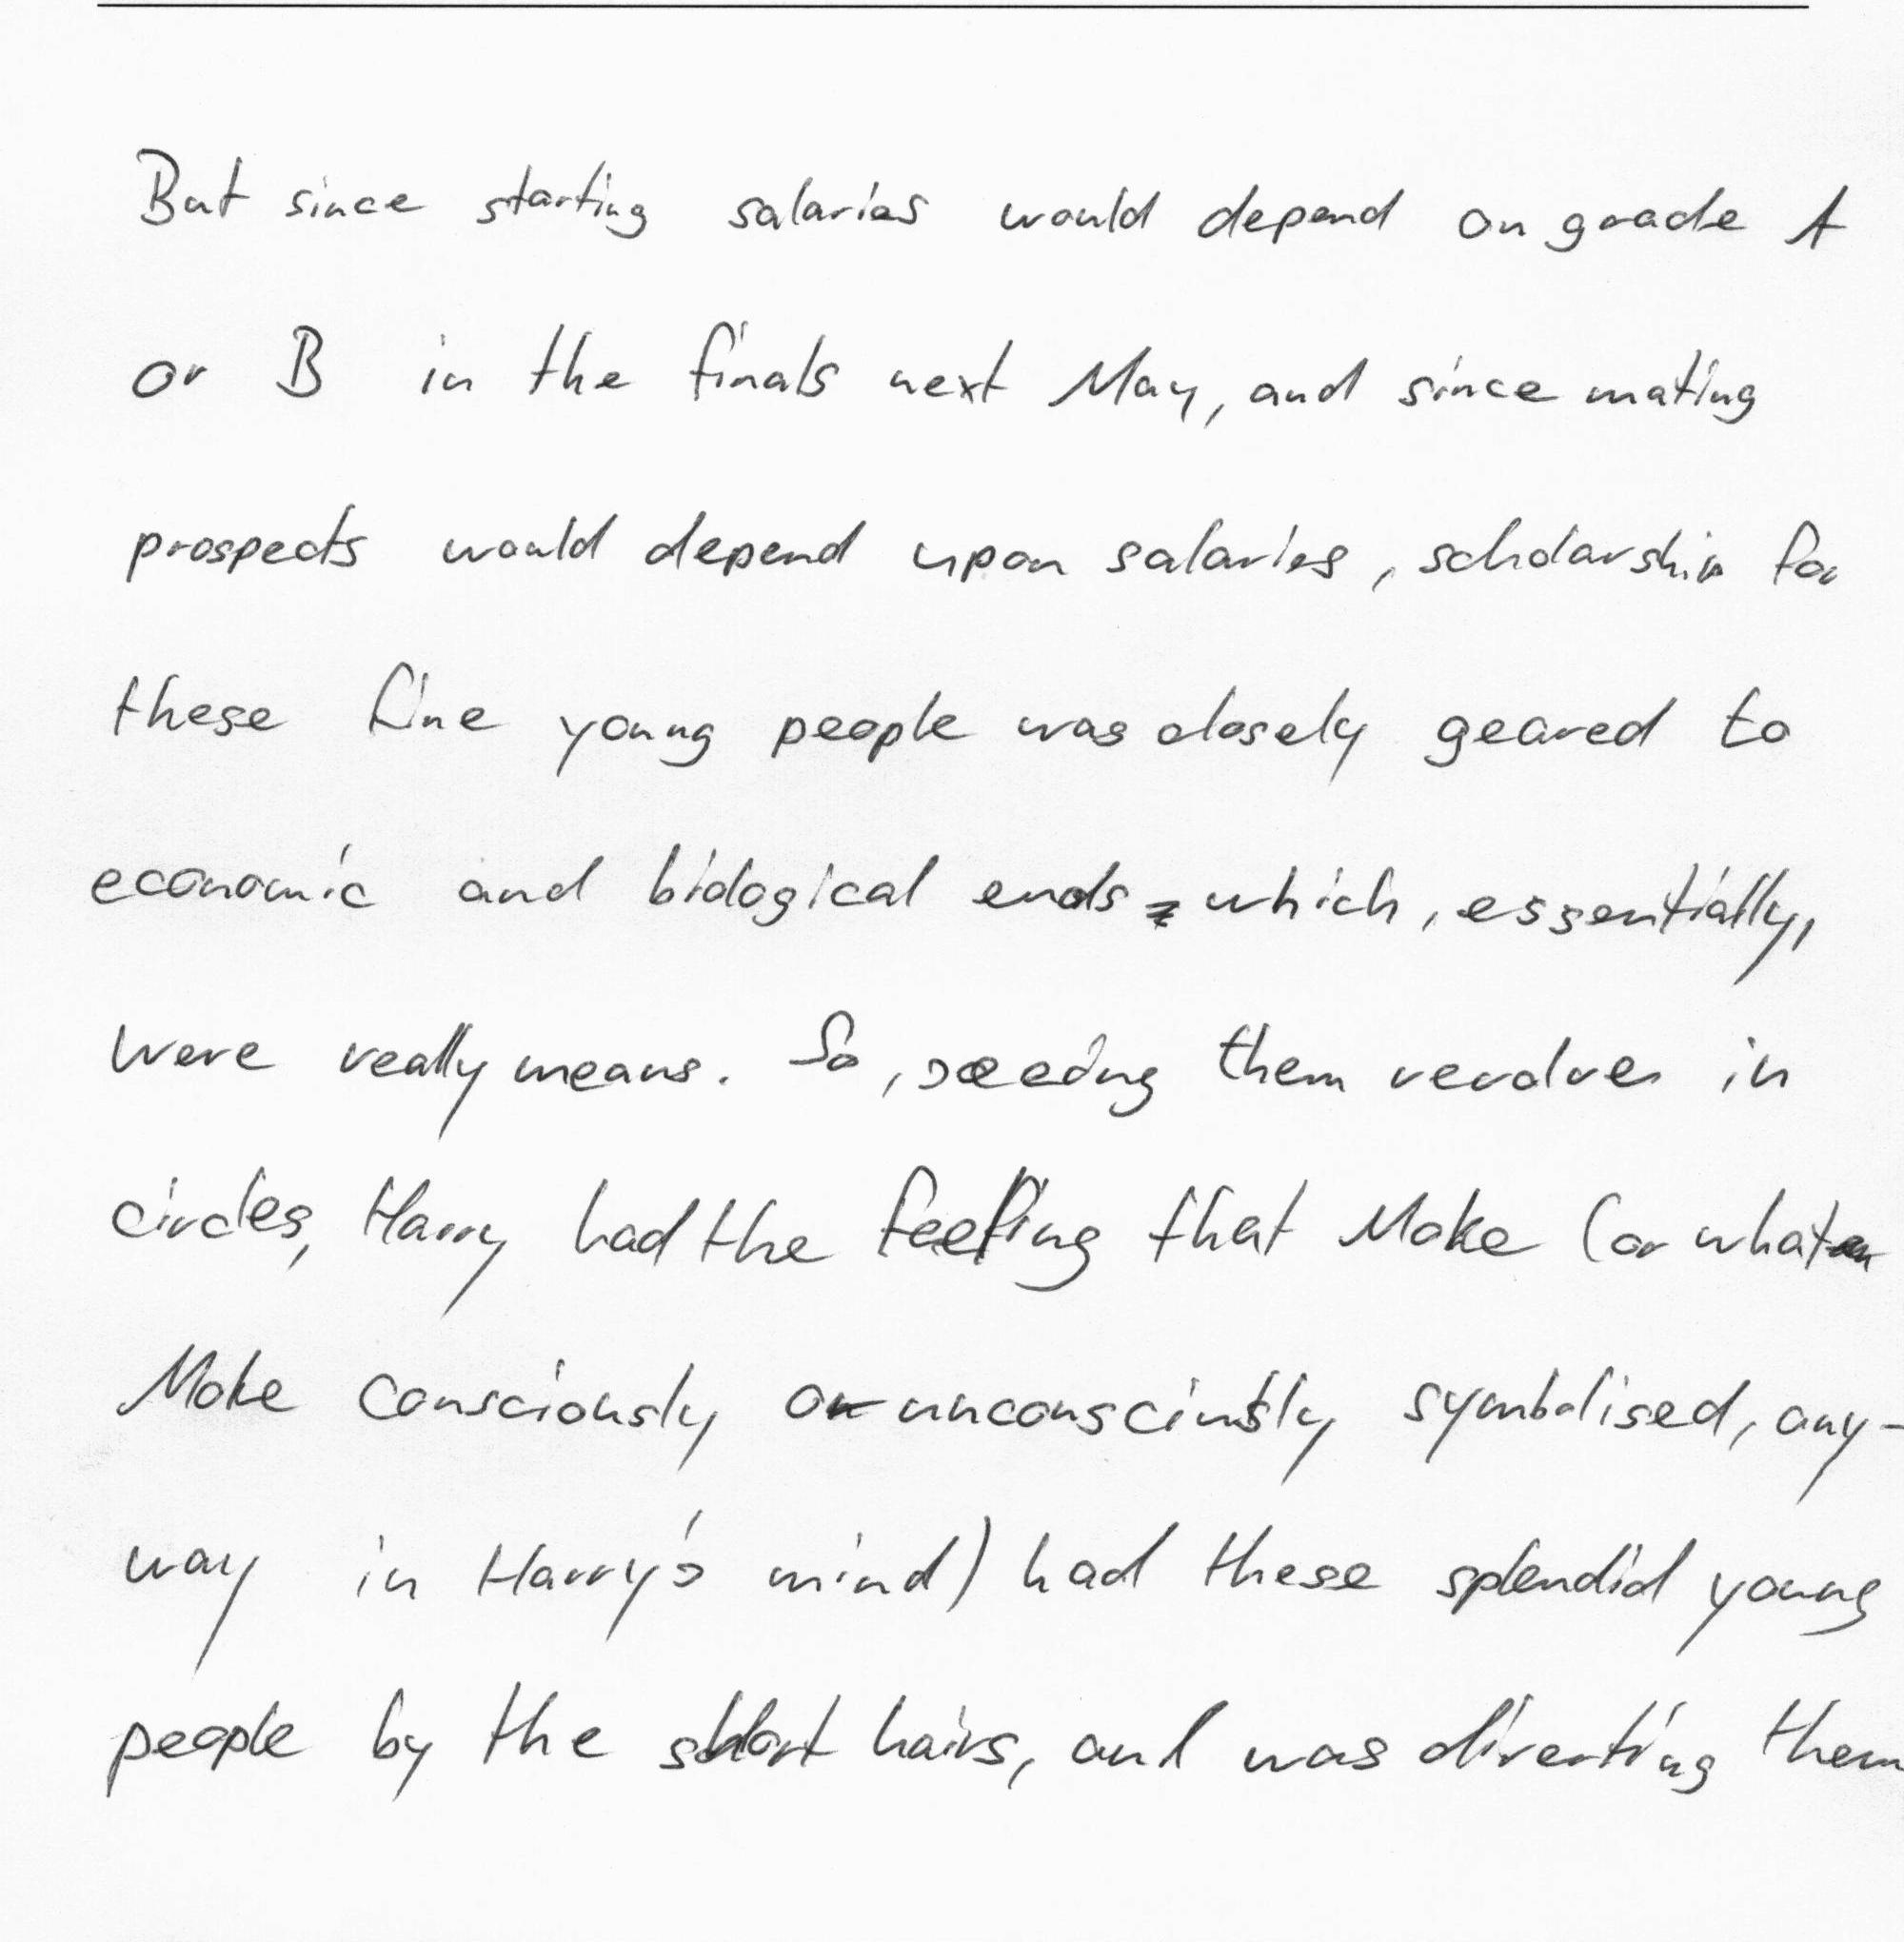 But since starting salaries would depend on grade A
or B in the finals next May, and since mating
prospects would depend upon salaries, scholarship for
these fine young people was closely geared to
economic and biological ends - which, essentially,
were really means. So, seeing them revolve in
circles, Harry had the feeling that Moke (or what
Moke consciously or unconsciously symbolised, any-
way in Harry's mind) had these splendid young
people by the short hairs, and was diverting them